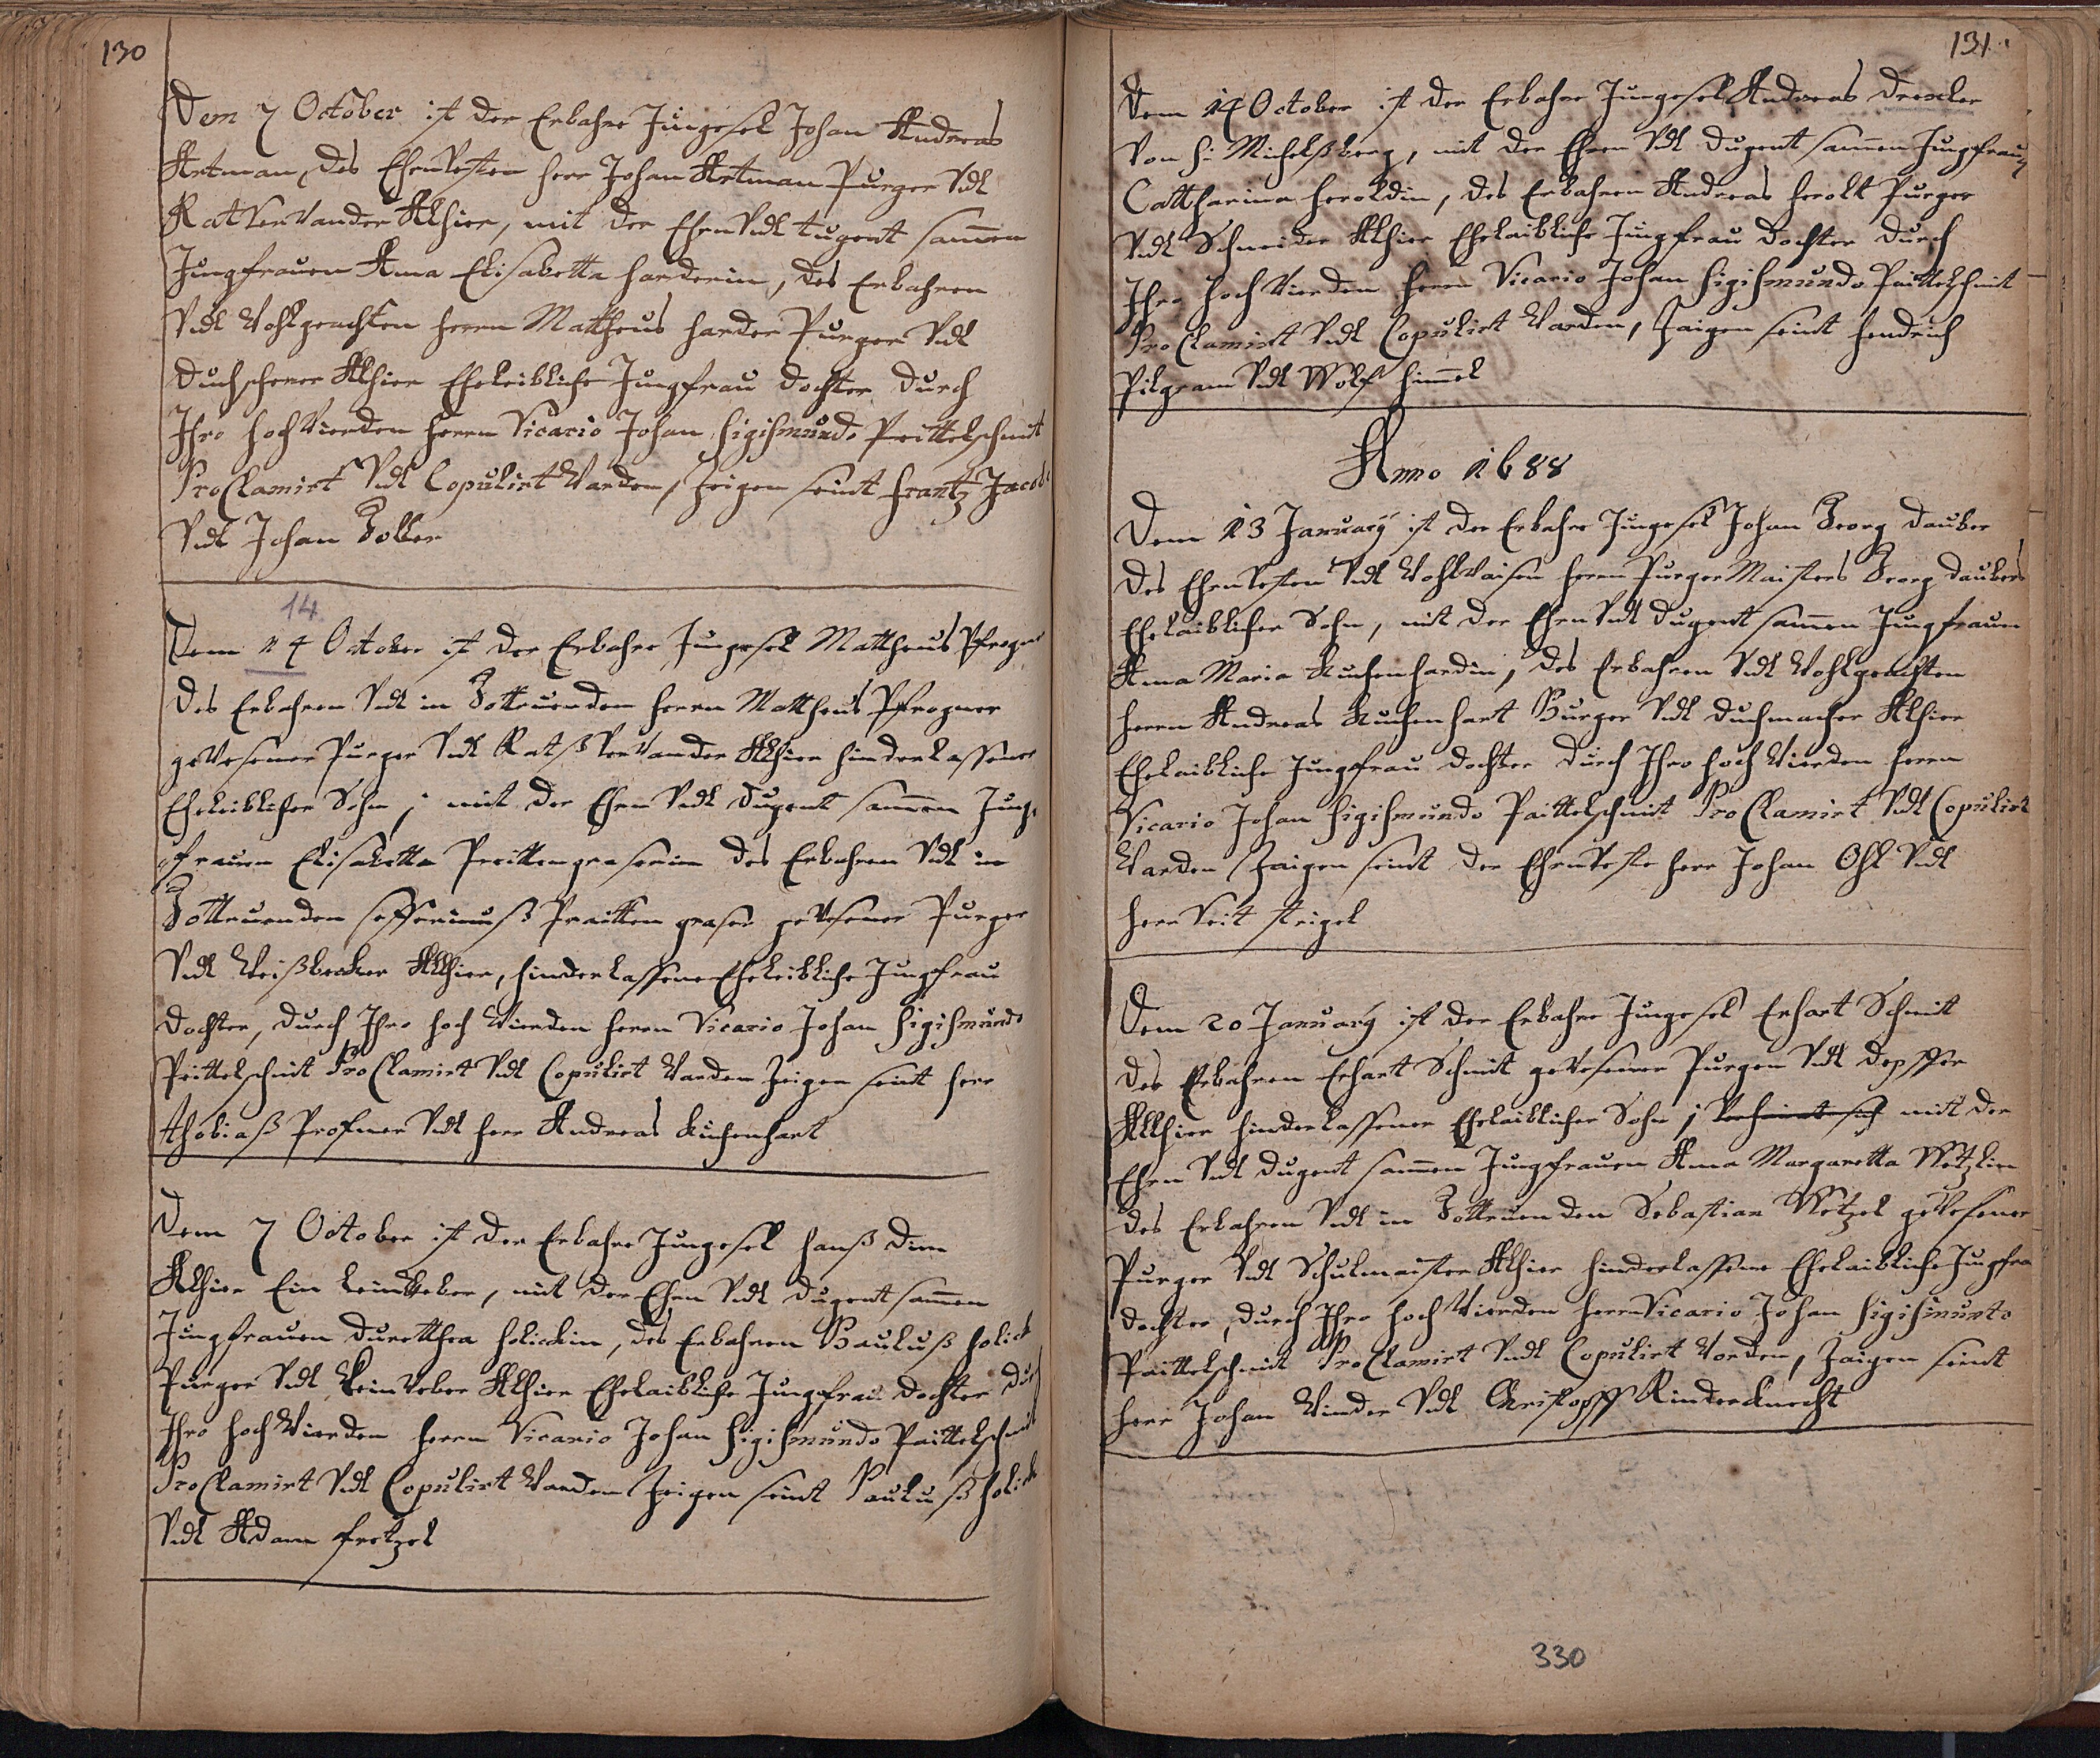 130
Dem 7 October ist der Erbahre Jüngesel Johan Andreas
Artman, des Ehrnvesten herr Johan Artman Purger Vndt
Rat Vervander Alhier, mit der Ehrn Vndt tugent samen
Jungfrauen Anna Elisabetta harderin, des Erbahren
Vndt Wohlgeachten herrn Mattheus harder Purger Vndt
duchscherer Alhier Eheleibliche Jungfrau dochter durch
Ihro hoch Wierden herrn Vicario Johan Sigismundo Peittelschmit
Pro Clamirt Vndt Copulirt Warden, Zeigen seint Frantz Jacob
Vndt Johan Goller
14
Dem 14 October ist der Erbahre Jungesel Mattheus Pfrogner
des Erbahren Vndt in Gott ruenden herrn Mattheus Pfrogner
geWesener Purger Vndt Ratß Vervander Alhier hinderlassener
Eheleiblicher Sohn; mit der Ehrn Vndt dugent samen Jung-
frauen Elisabetta Preittengraserin des Erbahren Vndt in
Gott ruenden Praitten graser geWesener Purger
Vndt Weißbecker Allhier, hinderlassene Eheleibliche Jungfrau
dochter, durch Ihro hoch Wierden herrn Vicario Johan Sigismundo
Peittelschmit Pro Clamirt Vndt Copulirt Warden Zeigen seint herr
thobiaß Profner Vndt herr Andreas Kuchenhart
Dem 7 October ist der Erbahre Jungesel hanß dim
Alhier Ein leinWeber, mit der Ehrn Vndt dugent samen
Jungfrauen durotthea holickin, des Erbahren Bauluß holick
Purger Vndt LeinWeber Alhier Ehelaibliche Jungfrau dochter durch
Ihro hoch Wierden herrn Vicario Johan Sigismundo Paittelschmit
Pro Clamirt Vndt Copulirt Warden Zeigen seint Pauluß holick
Vndt Adam fretzel
131
Dem 14 October ist der Erbahre Jungesel Andreas Drescher
Von S: Michelßberg, mit der Ehrn Vndt dugent samen Jungfrauen
Cattharina heroldin, des Erbahren Andreas herolt Purger
Vndt Schneider Alhier Ehelaibliche Jungfrau dochter durch
Ihro hoch Wierden herrn Vicario Johan Sigismundo Paittelschmit
Pro Clamirt Vndt Copulirt Warden, Zaigen seint hendrich
Pilgram Vndt Wolf himel
Anno 1688
Dem 13 January ist der Erbahre Jungesel Johan Georg dauber
des Ehrnvesten Vndt WohlWaisen herrn Purger Maisters Georg daubers
Ehelaiblicher Sohn, mit der Ehrn Vndt dugent samen Jungfrauen
Anna Maria Kuchenhardin, des Erbahren Vndt Wohlgeachten
herrn Andreas Kuchenhart Burger Vndt duchmacher Alhier
Ehelaibliche Jungfrau dochter durch Ihro hoch Wierden herrn
Vicario Johan Sigismundo Paittelschmit Pro Clamirt Vndt Copulirt
Warden Zaigen seint der Ehrnveste herr Johan Ohl Vndt
herr Veit strigel
Dem 20 January ist der Erbahre Jungesel Erhart Schmit
des Erbahren Erhart Schmit geWesener Purger Vndt depffer
Allhier hinderlassener Ehelaiblicher Sohn; Verheirat sich mit der
Ehrn Vndt dugent samen Jungfrauen Anna Margaretta Wetzlin
des Erbahren Vndt in Gott ruenden Sebastian Wetzel geWesener
Purger Vndt Schulmaister Alhier hinderlassene Ehelaibliche Jungfrau
dochter, durch Ihro hoch Wierden herrn Vicario Johan Sigismunto
Paittelschmit Pro Clamirt Vndt Copulirt Worden, Zaigen seint
herr Johan Winder Vndt Christopff Rinderknecht
330